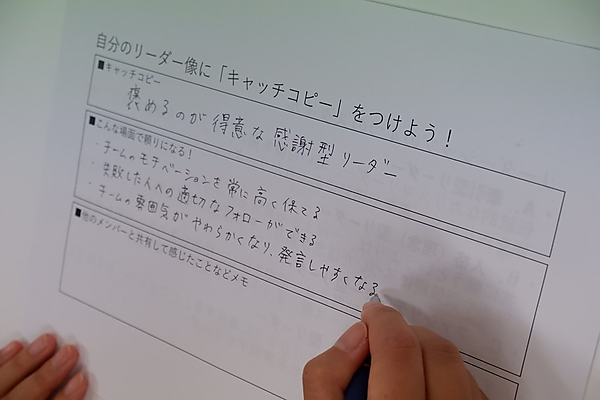 自分のリーダー像に「キャッチコピー」をつけよう！
■キャッチコピー
褒めるのが得意な感謝型リーダー
■こんな場面で頼りになる！
・チームのモチベーションを常に高く保てる
・失敗した人への適切なフォローができる
・チームの雰囲気がやわらかくなり、発言しやすくなる
■他のメンバーと共有して感じたことなどメモ